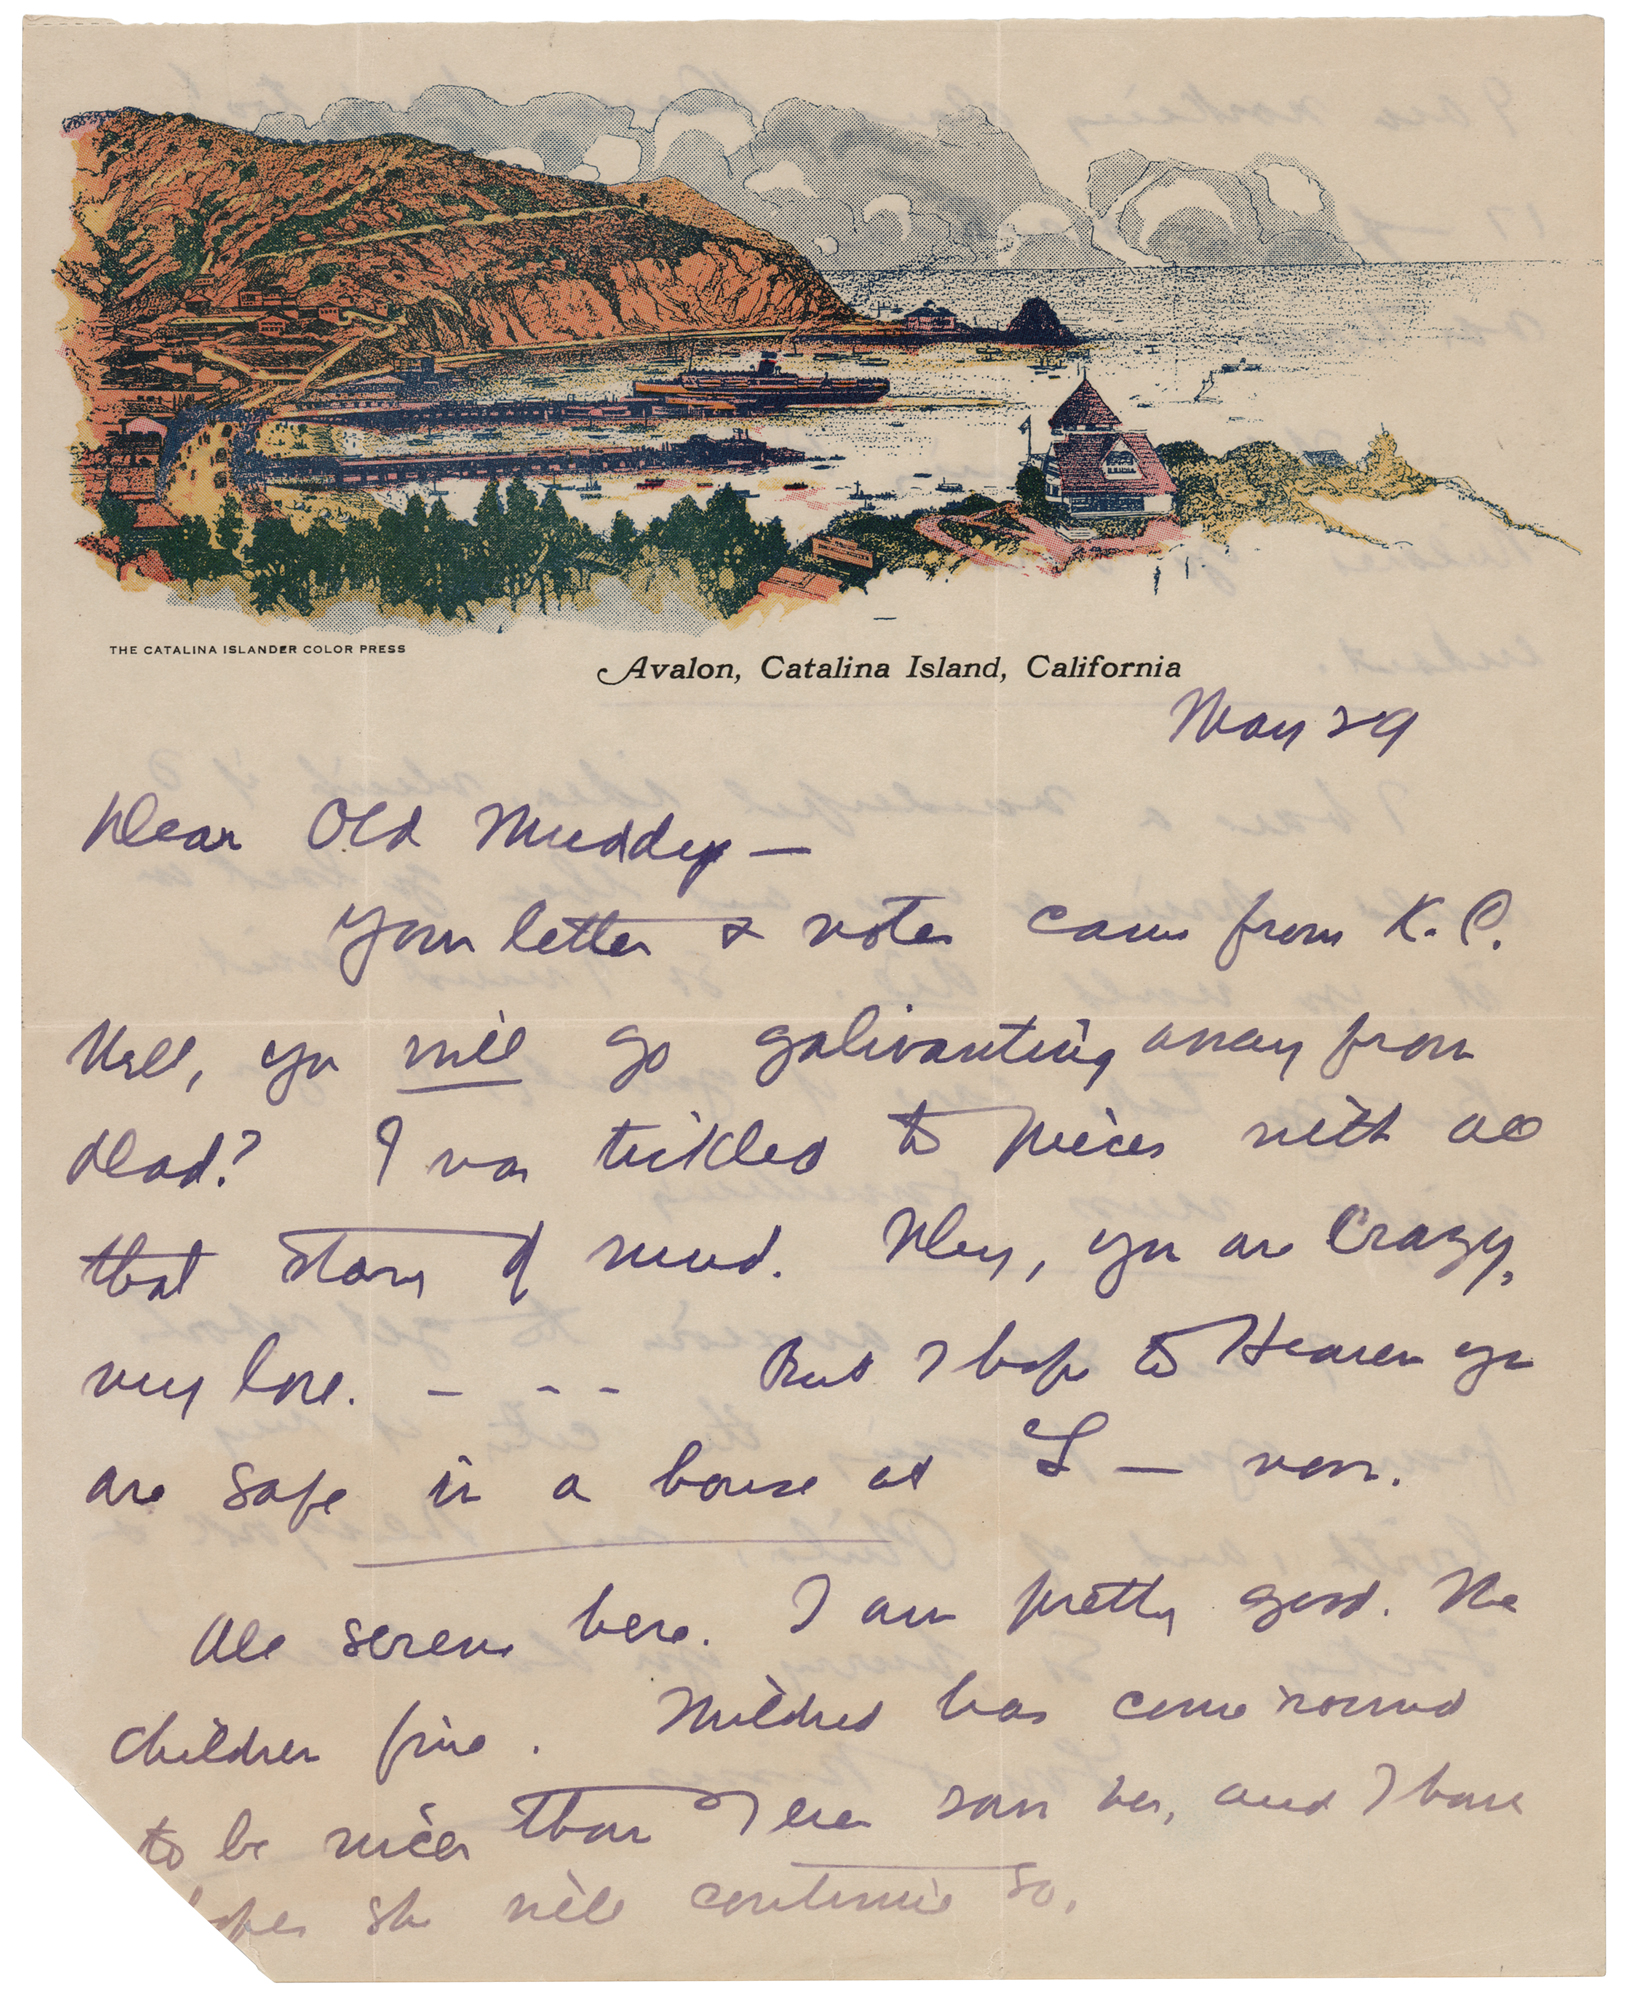 THE CATALINA ISLANDER COLOR PRESS
Avalon, Catalina Island, California
May 29
Dear Old Muddy —
Your letter & notes came from K. C.
Well, you will go galivanting away from
Dad? I was tickled to pieces with all
that story of mud. Why, you are Crazy,
my love. — - - But I hope to Heaven you
are safe in a house at L — now.
All serene here. I am pretty good. The
children fine. Mildred has come 'round
to be nicer than I ever saw her, and I have
hopes she will continue so.